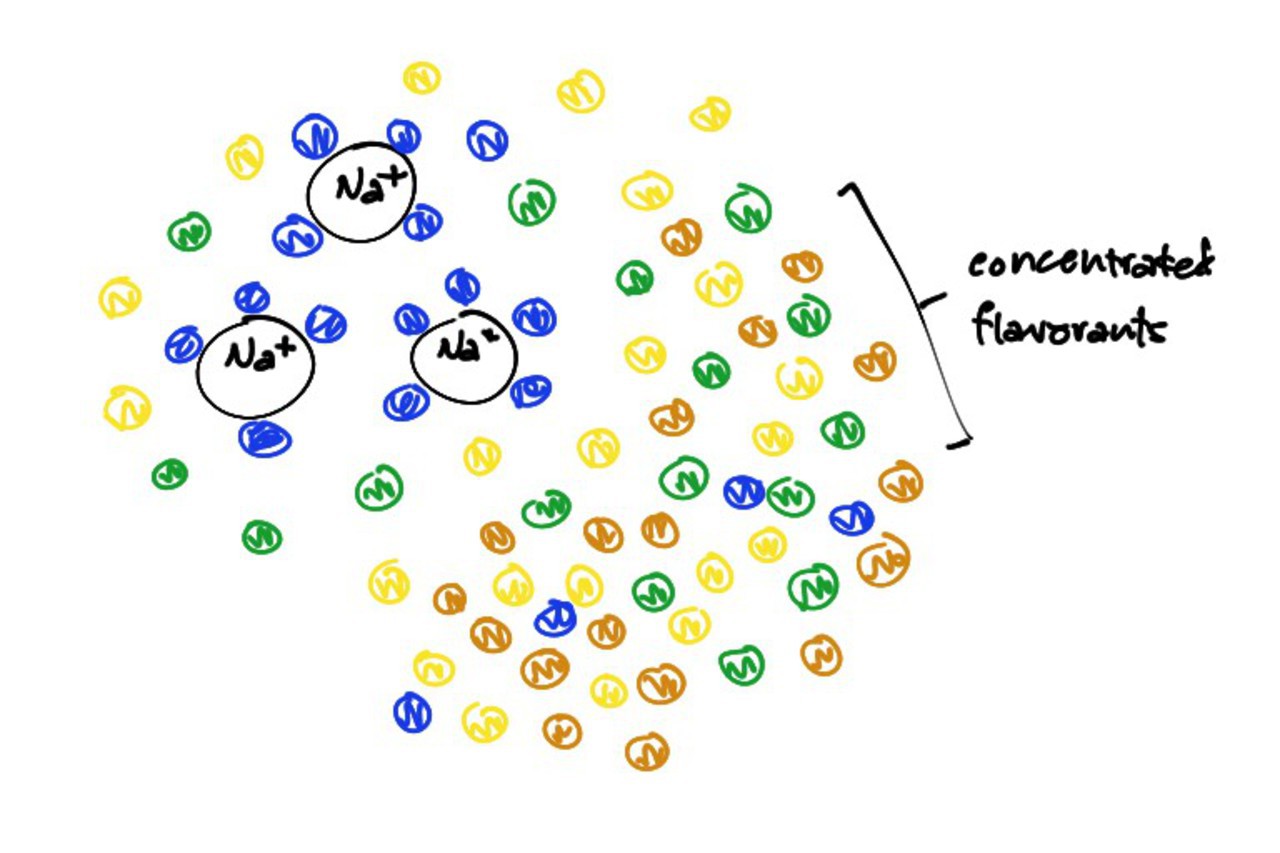 Na+
Na+
Na+
concentrated
flavorants